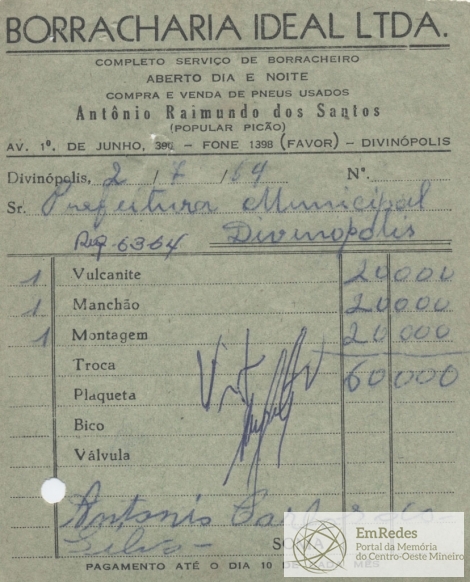 BORRACHARIA IDEAL LTDA.
COMPLETO SERVIÇO DE BORRACHEIRO
ABERTO DIA E NOITE
COMPRA E VENDA DE PNEUS USADOS
Antônio Raimundo dos Santos
(POPULAR PICÃO)
AV. 1º. DE JUNHO, 380 - FONE 1398 (FAVOR) - DIVINÓPOLIS
Divinópolis, 2 / 7 / 64 Nº.
Sr. Prefeitura Municipal
Req. 6364 Divinópolis
1 Vulcanite 20000
1 Manchão 20000
1 Montagem 20000
Troca 60000
Plaqueta
Bico
Válvula
Antonio
Silva
PAGAMENTO ATÉ O DIA 10 DE CADA MÊS
EmRedes
Portal da Memória
do Centro-Oeste Mineiro